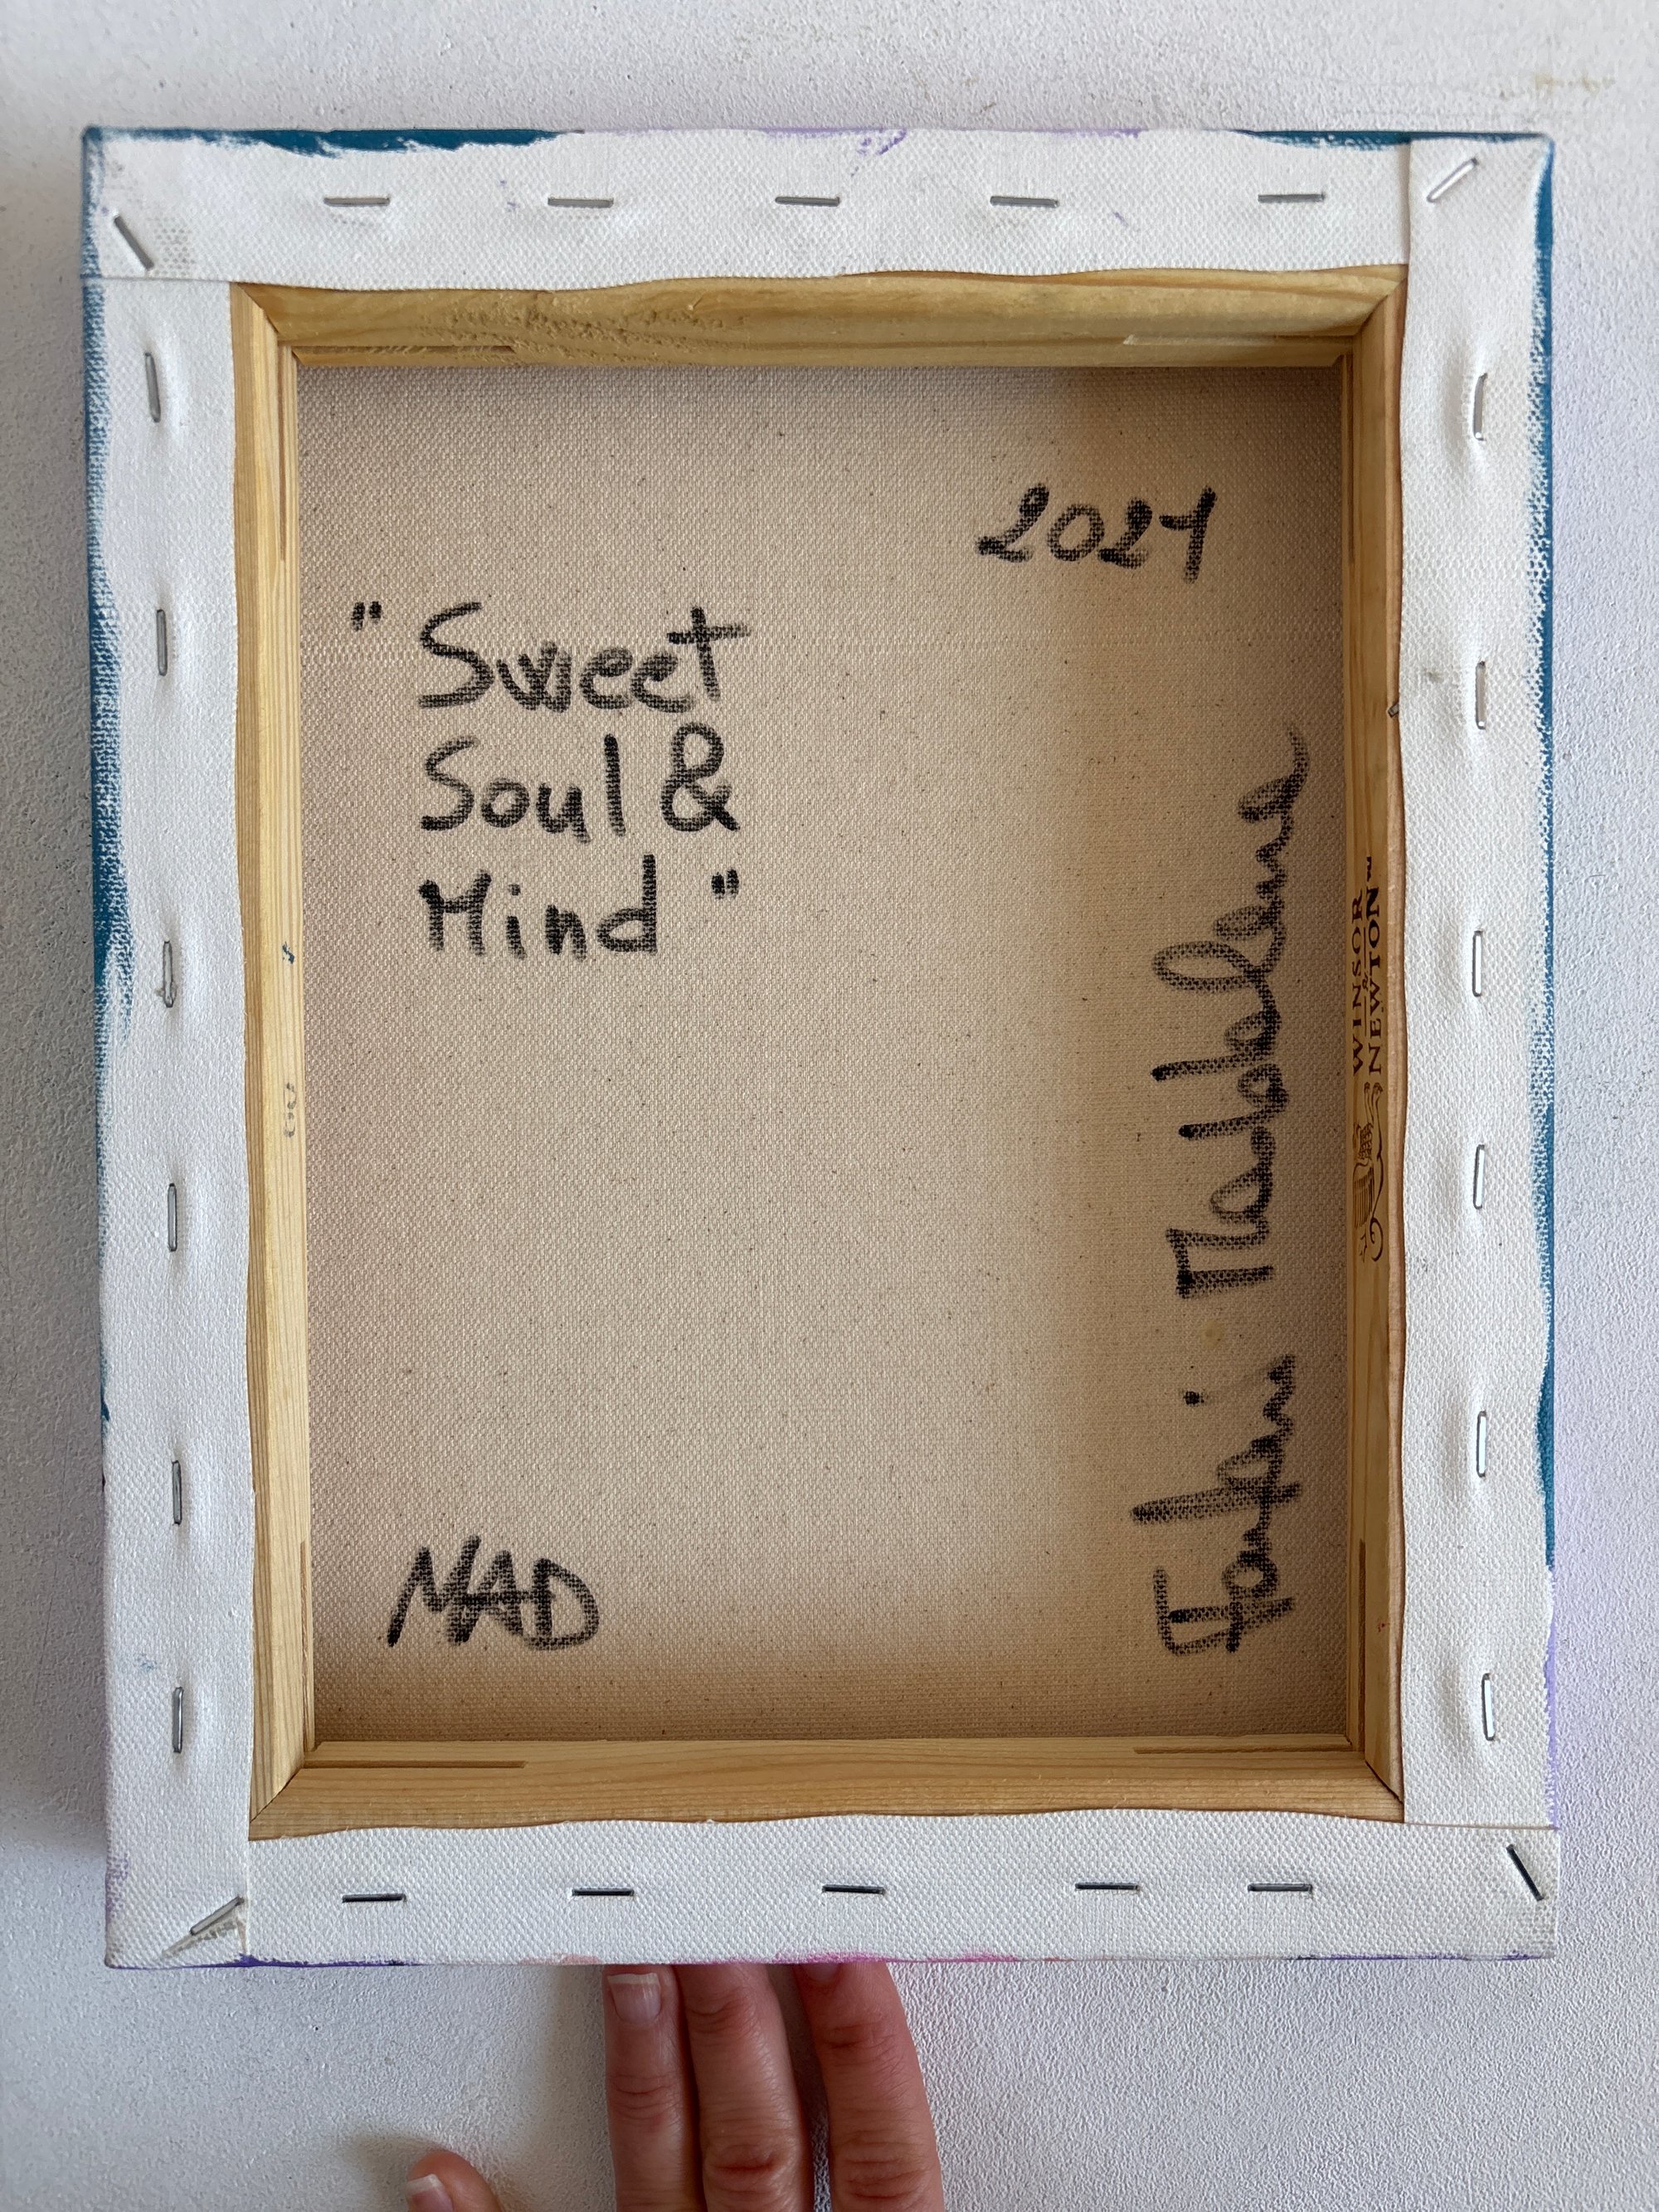 2021
"Sweet
Soul &
Mind"
MAD
WINSOR
& NEWTON™